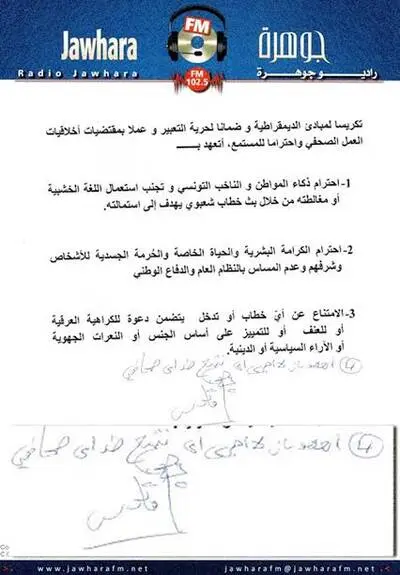 Jawhara
FM
جوهرة
Radio Jawhara
FM
102.5
راديو جوهرة
تكريسا لمبادئ الديمقراطية و ضمانا لحرية التعبير و عملا بمقتضيات أخلاقيات
العمل الصحفي واحتراما للمستمع، أتعهد بـــــــ
1- احترام ذكاء المواطن و الناخب التونسي و تجنب استعمال اللغة الخشبية
أو مغالطته من خلال بث خطاب شعبوي يهدف إلى استمالته.
2- احترام الكرامة البشرية والحياة الخاصة والحُرمة الجسدية للأشخاص
وشرفهم وعدم المساس بالنظام العام والدفاع الوطني
3- الامتناع عن أيّ خطاب أو تدخل يتضمن دعوة للكراهية العرقية
أو للعنف أو للتمييز على أساس الجنس أو النعرات الجهوية
أو الأراء السياسية أو الدينية.
4
4
www.jawharafm.net
jawharafm@jawharafm.net